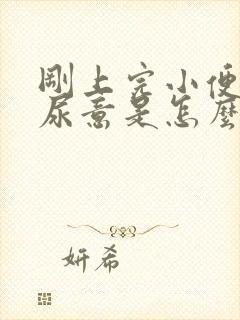 剛上完小便
尿意是怎麼
妍希